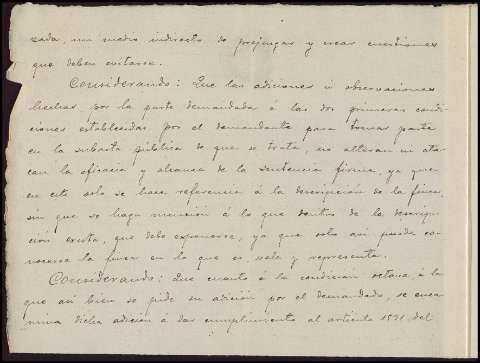 zada, un medio indirecto de prejuzgar y crear cuestiones
que deben evitarse.
Considerando: Que las adiciones ú observaciones
hechas por la parte demandada á las dos primeras condi-
ciones establecidas por el demandante para tomar parte
en la subasta pública de que se trata, no alteran ni ata-
can la eficacia y alcance de la sentencia firme, ya que
en ella solo se hace referencia á la descripción de la finca,
sin que se haga mención á lo que dentro de la descrip-
ción exista, que debe expresarse, ya que solo así puede co-
nocerse la finca en lo que es, vale y representa.
Considerando: Que cuanto á la condición octava á la
que así bien se pide su adición por el demandado, se enca-
mina dicha adición á dar cumplimiento al artículo 1531 del